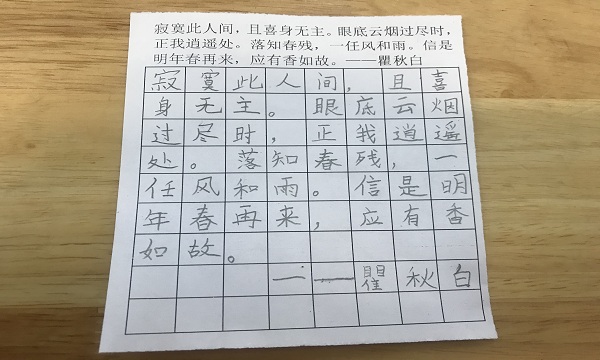 寂寞此人间，且喜身无主。眼底云烟过尽时，
正我逍遥处。落知春残，一任风和雨。信是
明年春再来，应有香如故。——瞿秋白
寂寞此人间，且喜
身无主。眼底云烟
过尽时，正我逍遥
处。落知春残，一
任风和雨。信是明
年春再来，应有香
如故。
——瞿秋白